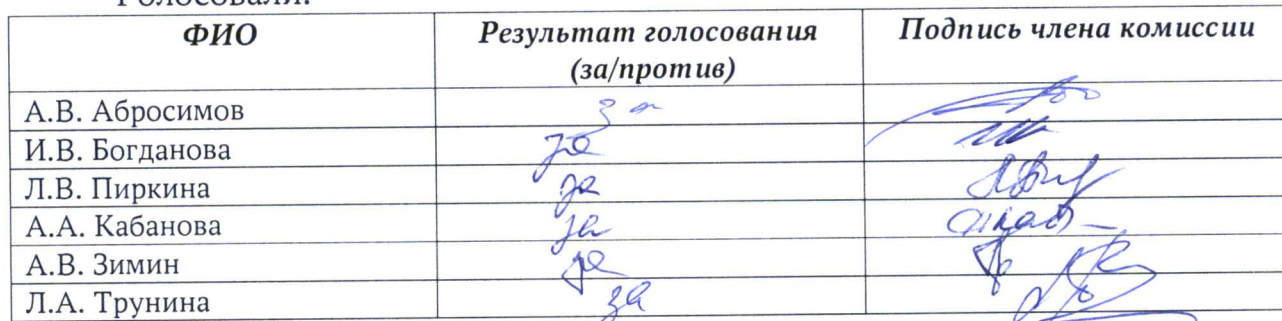 Голосовали:
ФИО Результат голосования Подпись члена комиссии
(за/против)
А.В. Абросимов за
И.В. Богданова за
Л.В. Пиркина за
А.А. Кабанова за
А.В. Зимин за
Л.А. Трунина за